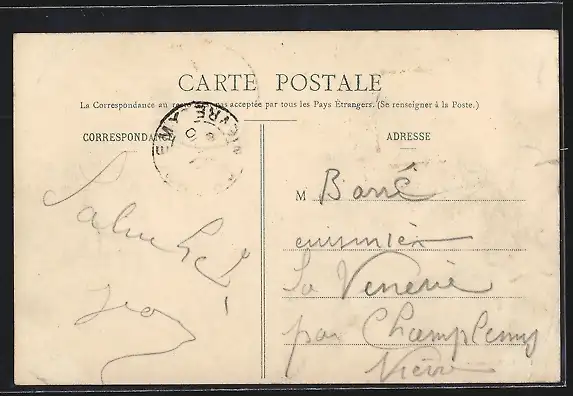 CARTE POSTALE
La Correspondance au recto pas acceptée par tous les Pays Étrangers. (Se renseigner à la Poste.)
CORRESPONDANCE
ADRESSE
M Barré
cuisinier
La Venerie
par Champlemy
Nièvre